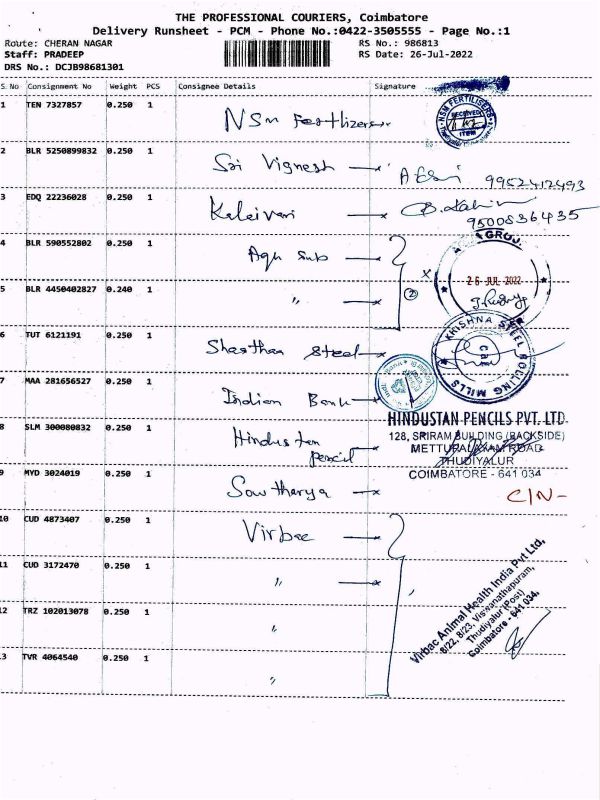 THE PROFESSIONAL COURIERS, Coimbatore
Delivery Runsheet - PCM - Phone No.:0422-3505555 - Page No.:1
Route: CHERAN NAGAR RS No.: 986813
Staff: PRADEEP RS Date: 26-Jul-2022
DRS No.: DCJB98681301
S.No Consignment No Weight PCS Consignee Details Signature
1 TEN 7327857 0.250 1 NSM Fertlizerser
NSM FERTILISERS
RECEIVED
2 BLR 5250899832 0.250 1 Sri Vignesh
9952412493
3 EDQ 22236028 0.250 1 Kalaivani
9500836435
4 BLR 590552802 0.250 1 Agri sub
5 BLR 4450402827 0.240 1 "
2 x
26 JUL 2022
6 TUT 6121191 0.250 1 Shasthan Steel
KRISHNA STEEL ROLLING MILLS
7 MAA 281656527 0.250 1 Indian Bank
8 SLM 300080832 0.250 1 Hindustan
pencil
HINDUSTAN PENCILS PVT. LTD
128, SRIRAM BUILDING (BACKSIDE)
METTUPALAYAM ROAD
THUDIYALUR
COIMBATORE - 641 034
9 MYD 3024019 0.250 1 Sowtharya
C/N-
10 CUD 4873407 0.250 1 Virbac
11 CUD 3172470 0.250 1 "
12 TRZ 102013078 0.250 1 "
13 TVR 4064540 0.250 1 "
Virbac Animal Health India Pvt Ltd,
8/22, 8/23, Viswanathapuram,
Thudiyalur (Post)
Coimbatore - 641 034.